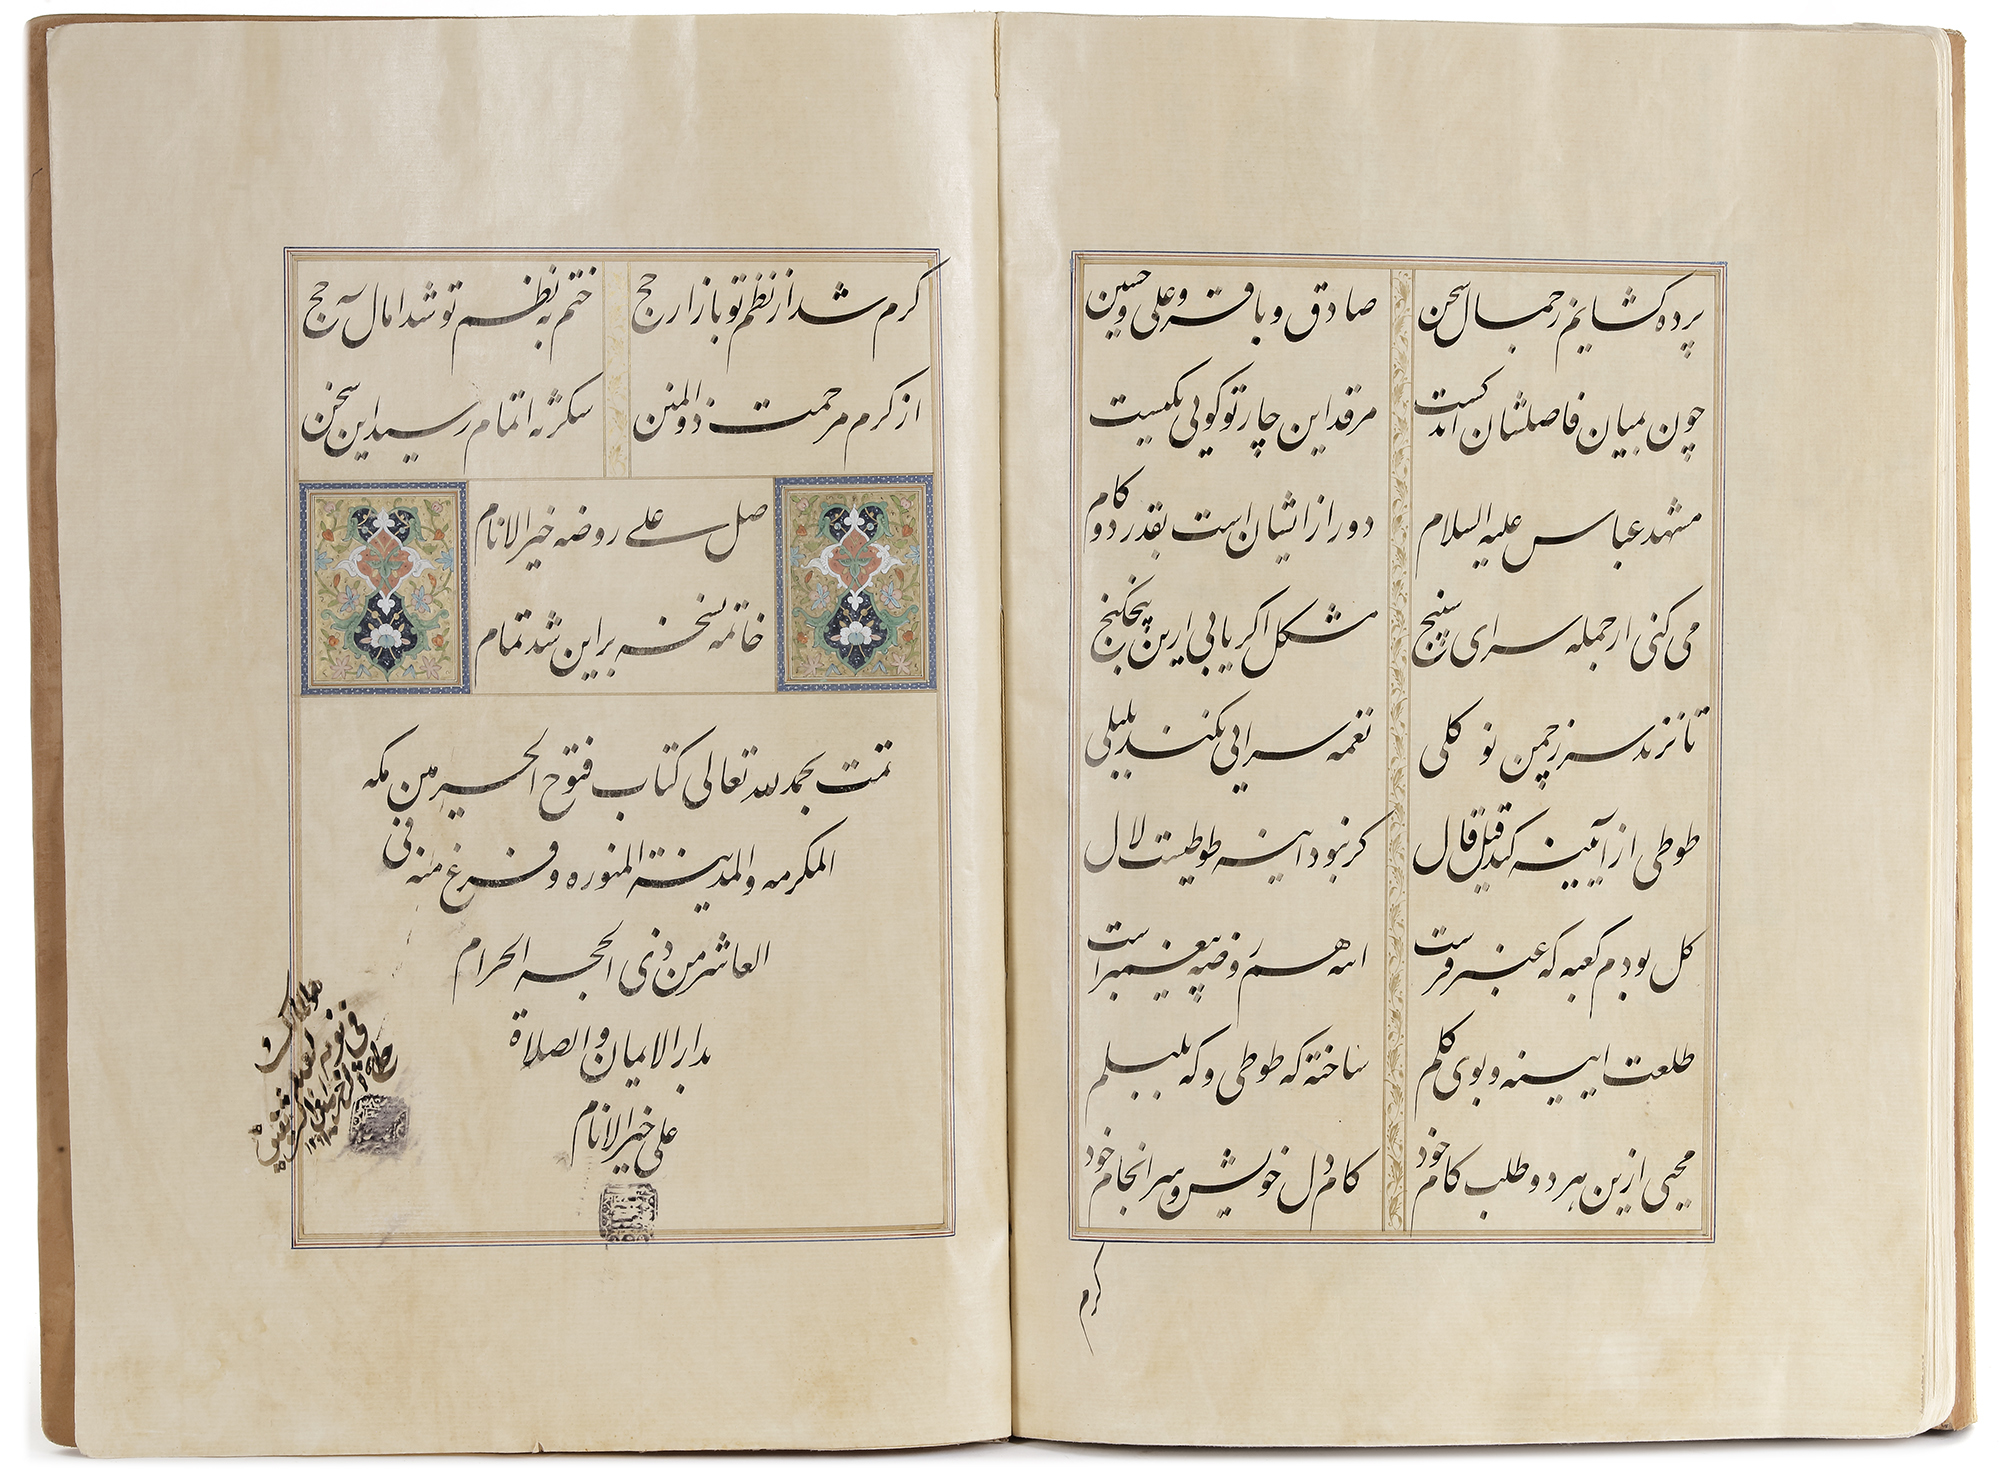 پرده کشایم ز جمال سخن صادق و باقر و علی و حسین
چون بمیان فاصلشان اندکست مرقد این چار تو کویی یکیست
مشهد عباس علیه السلام دور از ایشان است بقدر دو کام
می کنی ار جمله سرای سپنج مشکل اکر یابی ازین پنج کنج
تا نزند سر ز چمن نو کلی نغمه سرایی نکند بلبلی
طوطی از آیینه کند قیل قال کر نبود آینه طوطیست لال
کل بودم کعبه که عنبر فرست آینه هم روضه پیغمبر است
طلعت آیینه و بوی کلم ساخته که طوطی و که بلبلم
محیی ازین هر دو طلب کام خود کام دل خویش و سرانجام خود
کرم
کرم شد از نظم تو بازار حج ختم به نظم تو شد امال حج
از کرم مرحمت ذوالمنن شکر که اتمام رسید این سخن
صل علی روضه خیر الانام
خاتمه نسخه بر این شد تمام
تمت بحمد لله تعالی کتاب فتوح الحرمین من مکه
المکرمه والمدینة المنوره و فرغ منه فی
العاشر من ذی الحجه الحرام
بدار الایمان و الصلاة
علی خیر الانام